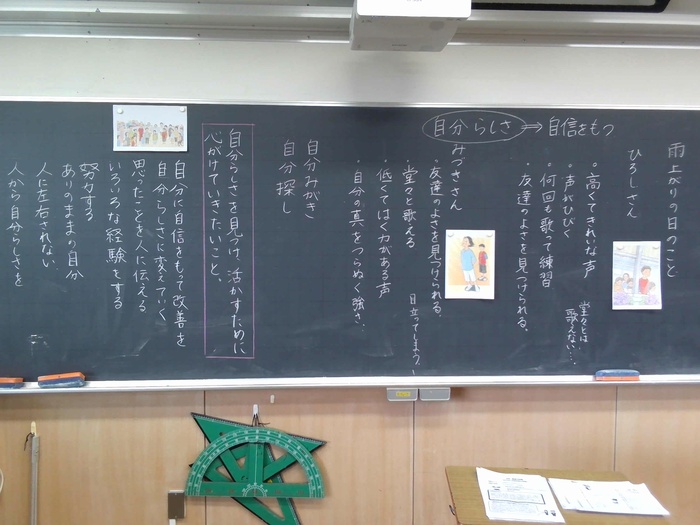 雨上がりの日のこと
自分らしさ⇒自信をもつ
ひろしさん
・高くてきれいな声
・声がひびく
・何回も歌って練習
・友達のよさを見つけられる。
堂々とは
歌えない…
みづきさん
・友達のよさを見つけられる。
・堂々と歌える
目立ってしまう
・低くてはく力がある声
・自分の真をつらぬく強さ
自分みがき
自分探し
自分らしさを見つけ、活かすために
心がけていきたいこと。
自分に自信をもって改善を
自分らしさに変えていく
思ったことを人に伝える
いろいろな経験をする
努力する
ありのままの自分
人に左右されない
人から自分らしさを